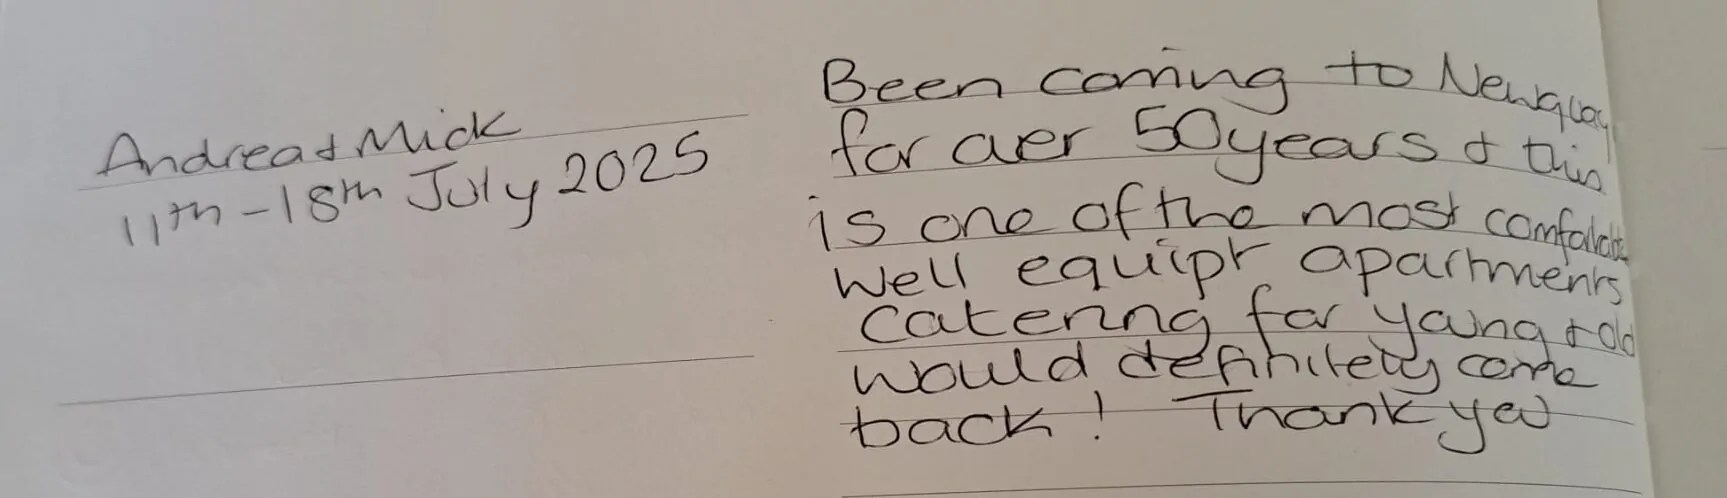 Andrea + Mick
11th - 18th July 2025
Been coming to Newquay
for over 50 years + this
is one of the most comfortable
well equipt apartments
catering for young + old
would definitely come
back! Thank you